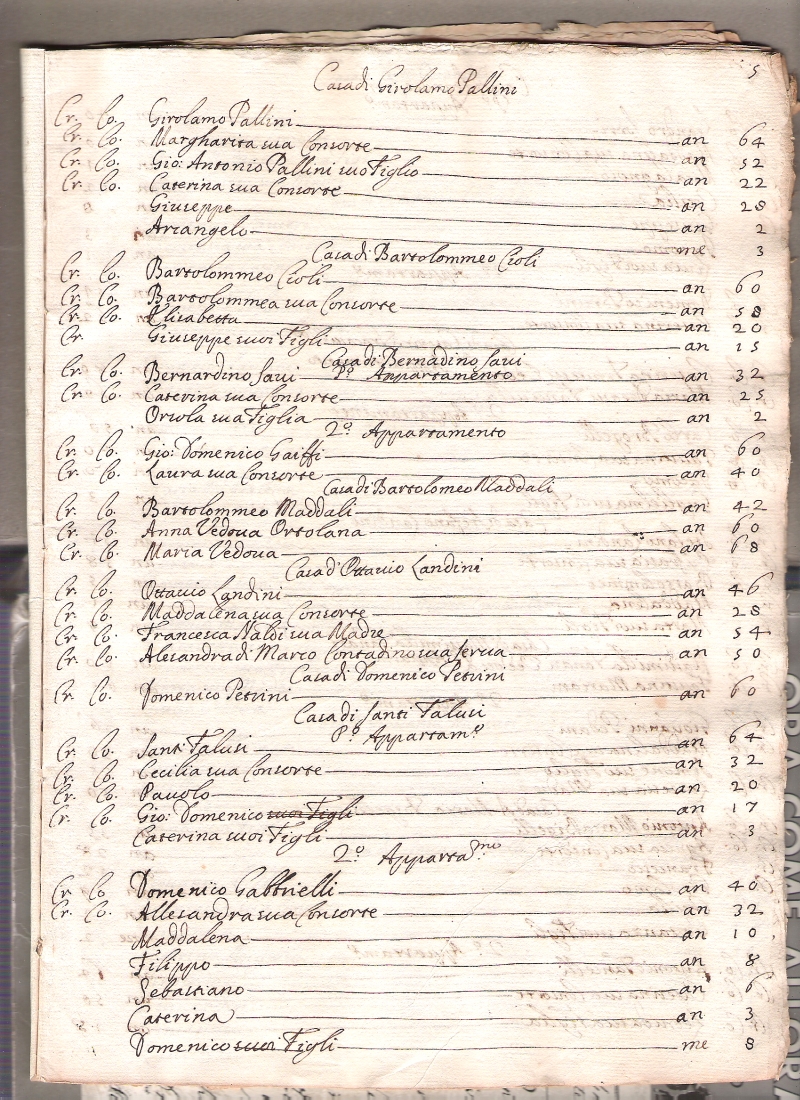 5
Casa di Girolamo Pallini
Cr. Co. Girolamo Pallini an 64
Cr. Co. Margharita sua Consorte an 52
Cr. Co. Gio: Antonio Pallini suo Figlio an 22
Cr. Co. Caterina sua Consorte an 28
Giuseppe an 2
Arcangelo me 3
Casa di Bartolommeo Cioli
Cr. Co. Bartolommeo Cioli an 60
Cr. Co. Bartolommea sua Consorte an 58
Cr. Co. Elisabetta an 20
Cr. Giuseppe suoi Figli an 15
Casa di Bernadino Savi
Pº Appartamento
Cr. Co. Bernardino Savi an 32
Cr. Co. Caterina sua Consorte an 25
Orsola sua Figlia an 2
2º Appartamento
Cr. Co. Gio: Domenico Gaiffi an 60
Cr. Co. Laura sua Consorte an 40
Casa di Bartolomeo Maddali
Cr. Co. Bartolommeo Maddali an 42
Cr. Co. Anna Vedova Ortolana an 60
Cr. Co. Maria Vedova an 68
Casa d'Ottavio Landini
Cr. Co. Ottavio Landini an 46
Cr. Co. Maddalena sua Consorte an 28
Cr. Co. Francesca Naldi sua Madre an 54
Cr. Co. Alesandra di Marco Contadino sua serva an 50
Casa di Domenico Petrini
Cr. Co. Domenico Petrini an 60
Casa di Santi Falusi
Pº Appartamº
Cr. Co. Santi Falusi an 64
Cr. Co. Cecilia sua Consorte an 32
Cr. Co. Pavolo an 20
Cr. Co. Gio: Domenico suoi Figli an 17
Caterina suoi Figli an 3
2º Appartamno
Cr. Co Domenico Gabbrielli an 40
Cr. Co. Allesandra sua Consorte an 32
Maddalena an 10
Filippo an 8
Sebastiano an 6
Caterina an 3
Domenico suoi Figli me 8